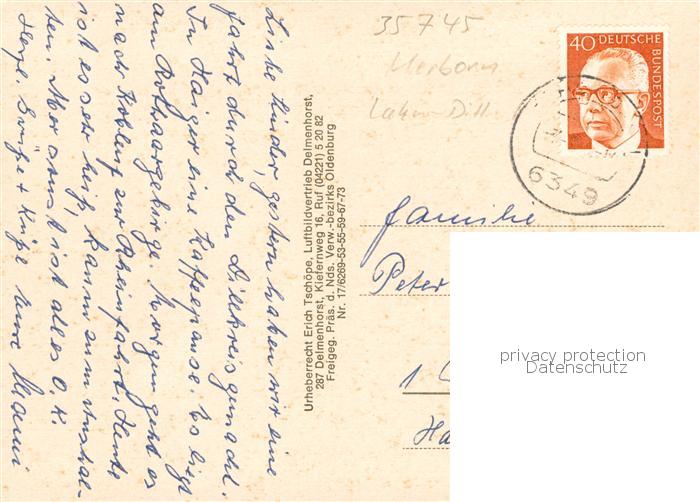 Liebe Kinder, gestern haben wir eine
Fahrt durch den Dillkreis gemacht.
In Haiger eine Kaffeepause. Es liegt
am Rothaargebirge. Morgen geht es
nach Koblenz zur Rheinfahrt. Heute
ist es sehr heiß, kaum zum aushal-
ten. Aber sonst ist alles O.K.
Herzl. Grüße + Küße eure Mammi
Urheberrecht Erich Tschöpe, Luftbildvertrieb Delmenhorst,
287 Delmenhorst, Kiefernweg 16, Ruf (04221) 5 20 82
Freigeg. Präs. d. Nds. Verw.-bezirks Oldenburg
Nr. 17/6269-53-55-59-67-73
35745
Herborn
Lahn-Dill
40 DEUTSCHE
BUNDESPOST
6349
Familie
Peter
1
Ha
privacy protection
Datenschutz